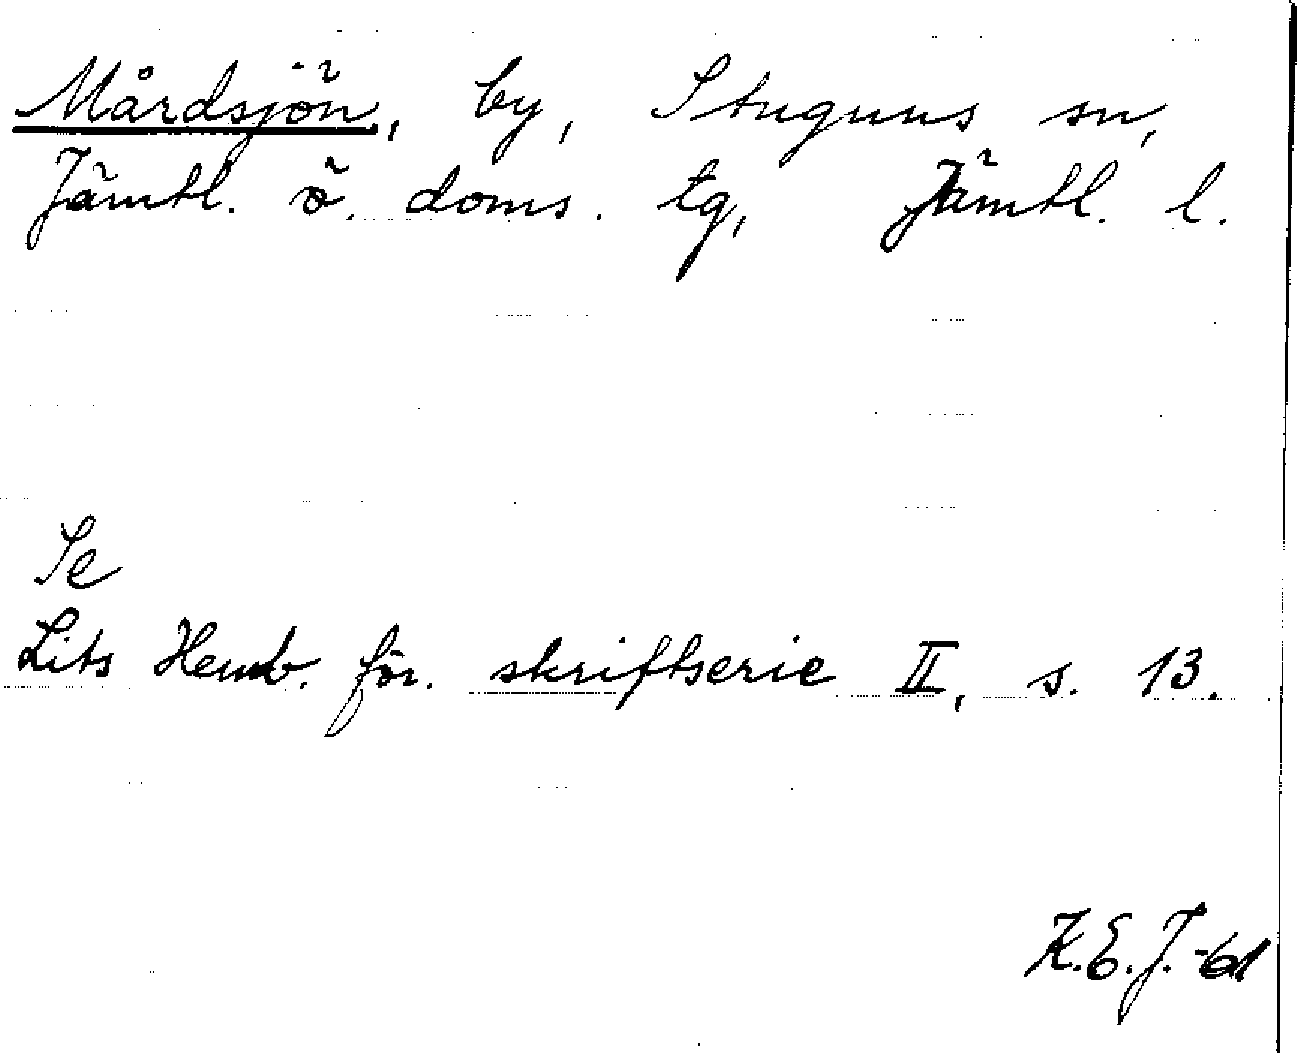 Mårdsjön, by, Stuguns sn,
Jämtl. ö. doms. tg, Jämtl. l.
Se
Lits Hemb. för. skriftserie II, s. 13.
K.E.J.-61